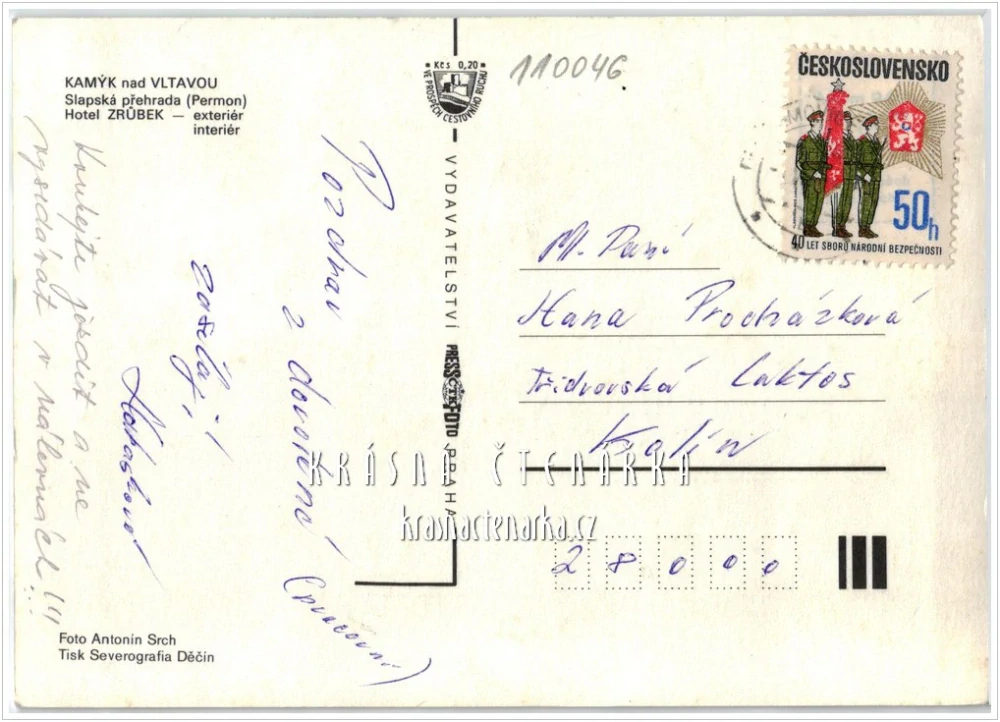 KAMÝK nad VLTAVOU
Slapská přehrada (Permon)
Hotel ZRŮBEK — exteriér
interiér
Kčs 0,20
VE PROSPĚCH CESTOVNÍHO RUCHU
110046
ČESKOSLOVENSKO
50h
40 LET SBORŮ NÁRODNÍ BEZPEČNOSTI
Pozdrav
z dovolené
(pracovní)
zasílají
a ne
v
!!!
VYDAVATELSTVÍ PRESSFOTO PRAHA
ČTK
M. Paní
Hana Procházková
Třídvorská Laktos
Kolín
28000
KRÁSNÁ ČTENÁRKA
krasnactenarka.cz
Foto Antonín Srch
Tisk Severografia Děčín